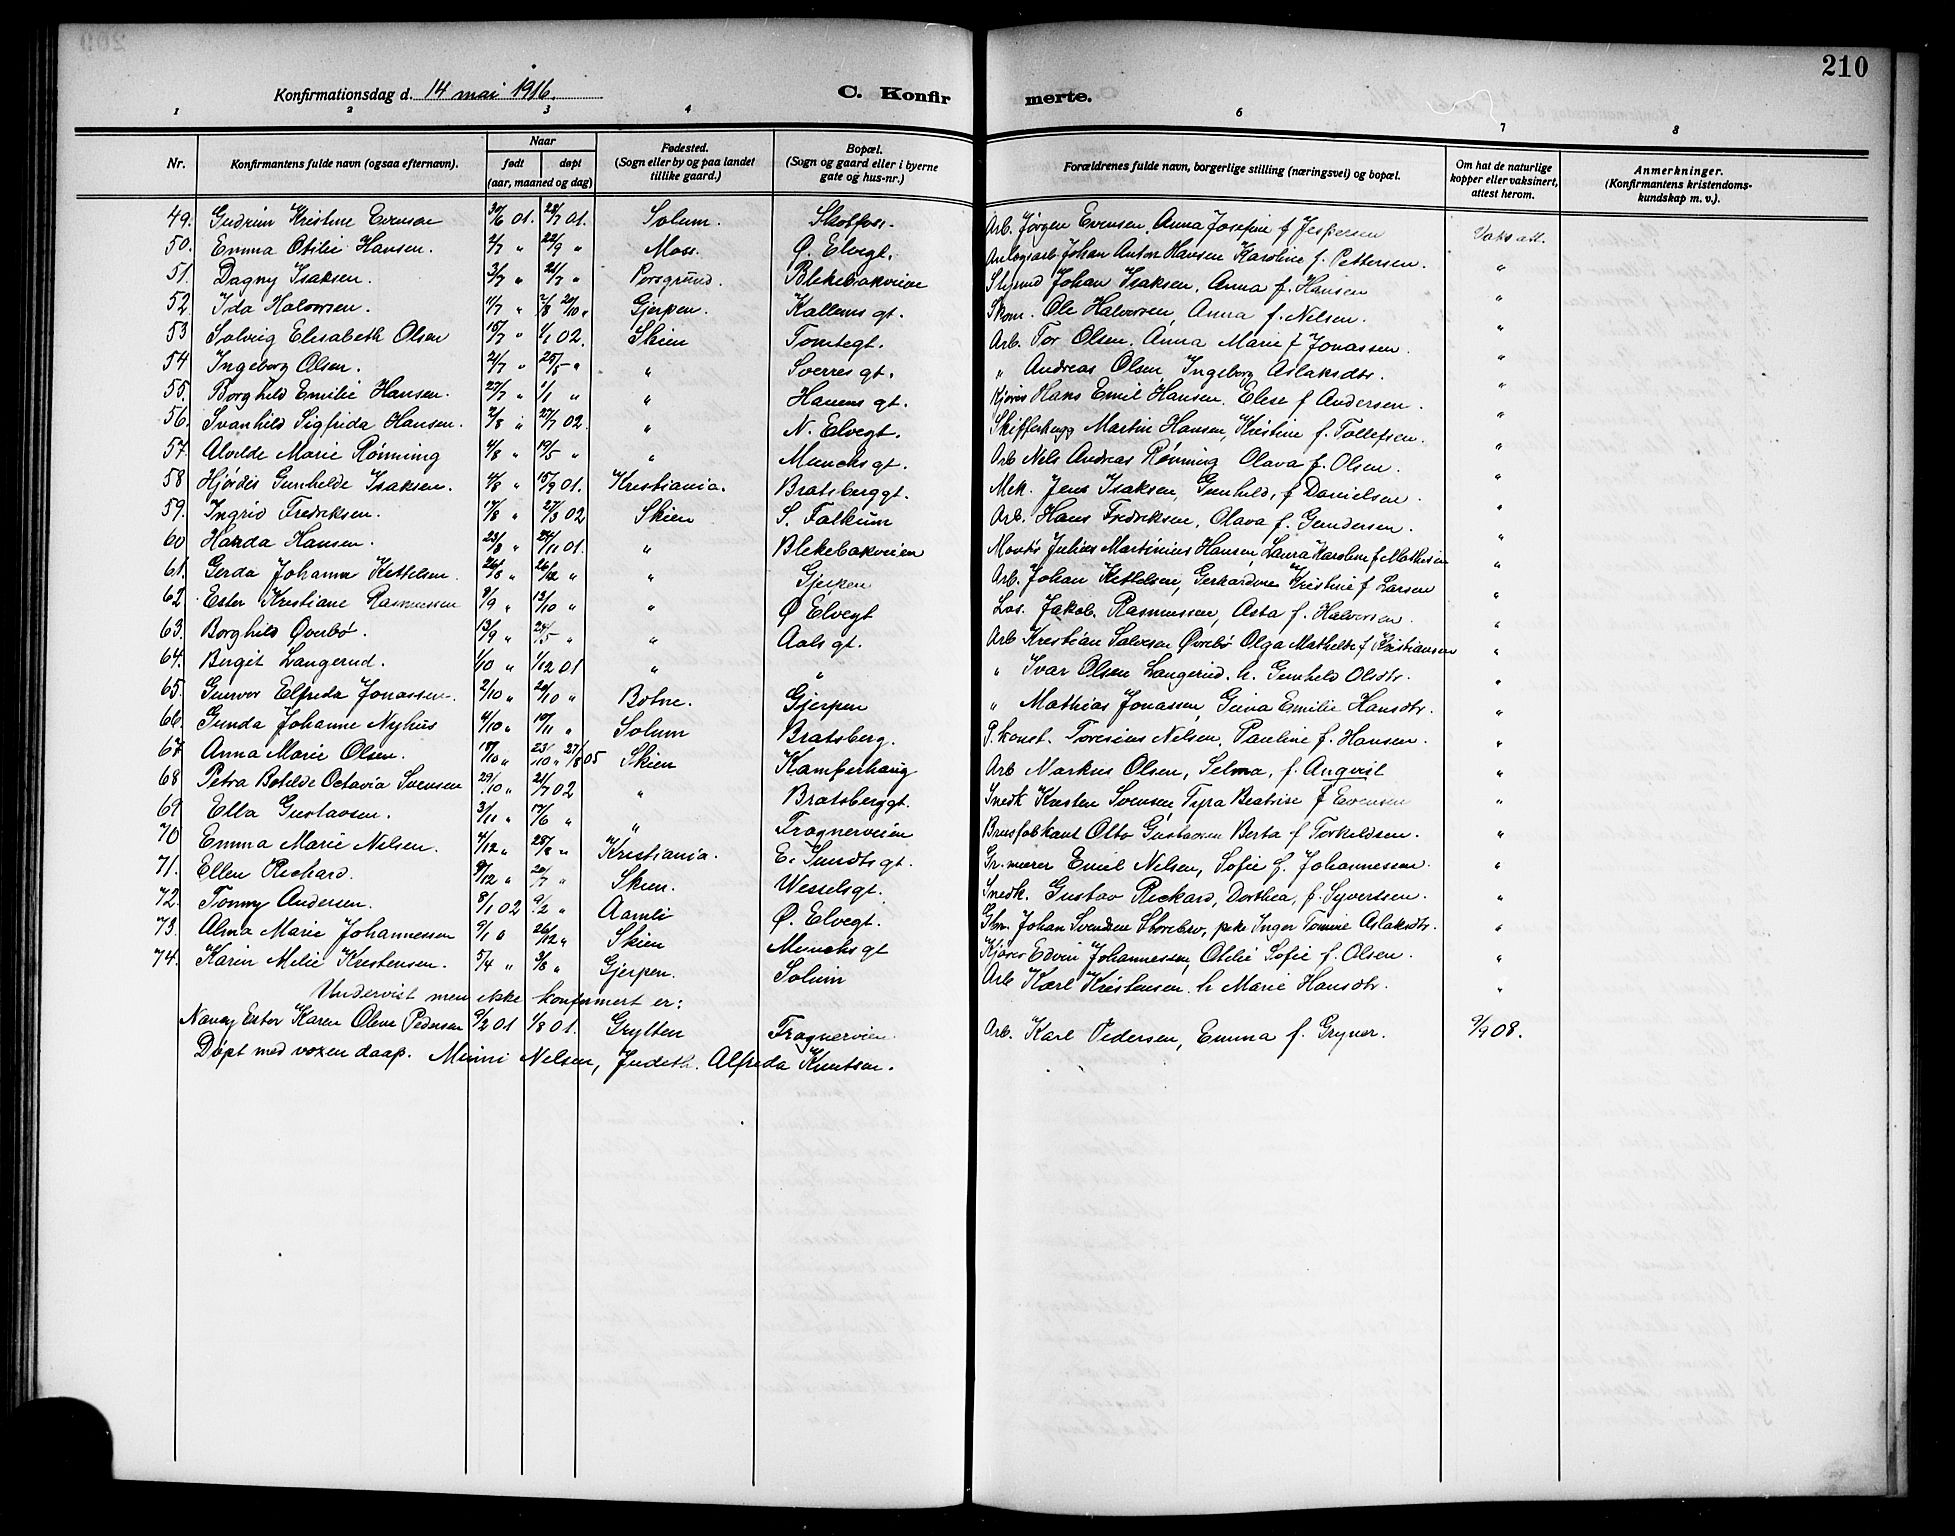 210
Konfirmationsdag d. 14 mai 1916. C. Konfirmerte.
1 2 3 4 6 7 8
Nr. Konfirmantens fulde navn (ogsaa efternavn). Naar født døpt (aar, maaned og dag) Fødested. (Sogn eller by og paa landet tillike gaard.) Bopæl. (Sogn og gaard eller i byerne gate og hus-nr.) Forældrenes fulde navn, borgerlige stilling (næringsvei) og bopæl. Om hat de naturlige kopper eller vaksinert, attest herom. Anmerkninger. (Konfirmantens kristendoms-kundskap m. v.).
49. Gudrun Kristine Evensen 30/6 01. 28/7 01. Solum. Skotfoss. Arb. Jørgen Evensen, Anna Josefine f Jespersen Vaks att.
50. Emma Otilie Hansen. 2/7 " 22/9 " Moss. Ø. Elvegt. Anlegsarb Johan Anton Hansen Karoline f. Pettersen. "
51. Dagny Isaksen. 3/7 " 21/7 " Porsgrund. Blekebakveien Johan Isaksen, Anna f. Hansen "
52. Ida Halvorsen. 11/7 " 20/10 " Gjerpen. Kallems gt. Skom. Ole Halvorsen, Anna f. Nilsen. "
53 Solveig Elisabeth Olsen 15/7 " 1/1 02. Skien Tomtegt. Arb. Tor Olsen, Anna Marie f Jonassen. "
54 Ingeborg Olsen. 21/7 " 25/5 " " Sverres gt. " Andreas Olsen, Ingeborg Aslaksdtr. "
55. Borghild Emilie Hansen. 27/7 " 1/1 " " Havens gt. Kjøres Hans Emil Hansen. Elise f Andersen. "
56. Svanhild Sigfrida Hansen. 2/8 " 27/7 02. " N. Elvegt. Martin Hansen, Kristine f. Tollefsen. "
57. Alvilde Marie Rønning 4/8 " 19/5 " " Munchs gt. Arb Nils Andreas Rønning Olava f. Olsen. "
58 Hjørdis Gunhilde Isaksen. 4/8 " 15/9 01. Kristiania. Bratsberggt. Mek. Jens Isaksen, Gunhild, f Danielsen. "
59. Ingrid Fredriksen. 17/8 " 2/3 02 Skien S. Falkum Arb. Hans Fredriksen, Olava f. Gundersen. "
60 Harda Hansen. 23/8 " 24/11 01. " Blekebakveien Montør Julius Martinius Hansen, Laura Karoline f Mathisen "
61. Gerda Johanne Kittelsen. 26/8 " 26/12 " " Gjerpen Arb. Johan Kittelsen, Gerhardine Kristine f Larsen "
62 Ester Kristiane Rasmussen 8/9 " 13/10 " " Ø Elvegt Los. Jakob Rasmussen, Asta f. Halvorsen. "
63. Borghild Øvrebø. 13/9 " 24/5 " " Aals gt. Arb Kristian Salvesen Øvrebø Olga Mathilde f Kristiansen "
64. Birgit Langerud. 1/10 " 1/12 01 " " " Ivar Olsen Langerud. h. Gunhild Olsdtr. "
65. Gunvor Elfrida Jonassen. 2/10 " 20/10 " Botne. Gjerpen " Mathias Jonassen, Gina Emilie Hansdtr. "
66. Gunda Johanne Nyhus 4/10 " 10/11 " Solum Bratsberg. P. konst. Toresius Nilsen, Pauline f. Hansen. "
67 Anna Marie Olsen. 18/10 " 23/10 " 27/8 05 Skien Kamperhaug Arb Markus Olsen, Selma, f. Anqvist "
68 Petra Botilde Octavia Svensen 29/10 " 21/7 02 " Bratsberggt. Snedk Kristen Svensen, Tyra Beatrise f Evensen "
69 Ella Gustavsen. 3/11 " 17/6 " " Frognerveien Brusfabkant Otto Gustavsen Berta f Torkildsen. "
70 Emma Marie Nilsen. 4/12 " 28/8 " Kristiania. E. Sundts gt. Gr. murer Emil Nilsen, Sofie f. Johannessen. "
71. Ellen Rickard. 9/12 " 20/7 " Skien. Wesselsgt. Snedk. Gustav Rickard, Dorthea, f. Syvertsen. "
72. Tonny Andersen. 8/1 02 9/2 " Aamli Ø. Elvegt. Johan Svendsen Storebro, pike Inger Tomine Aslaksdtr. "
73. Alma Marie Johannessen 9/1 " 26/12 " Skien Munchs gt Kjøres Edvin Johannessen, Otilie Sofie f. Olsen. "
74. Karin Milie Kristensen. 5/4 " 3/8 " Gjerpen. Solum Arb Karl Kristensen. h Marie Hansdtr. "
Undervist men ikke konfirmert er:
Nancy Ester Karen Oline Pedersen 9/2 01 1/8 01. Grytten Frognerveien. Arb. Karl Pedersen, Emma f. Gryner. 9/9 08.
Døpt med voxen daap. Minni Nilsen, Judith. Alfreda Knutsen.